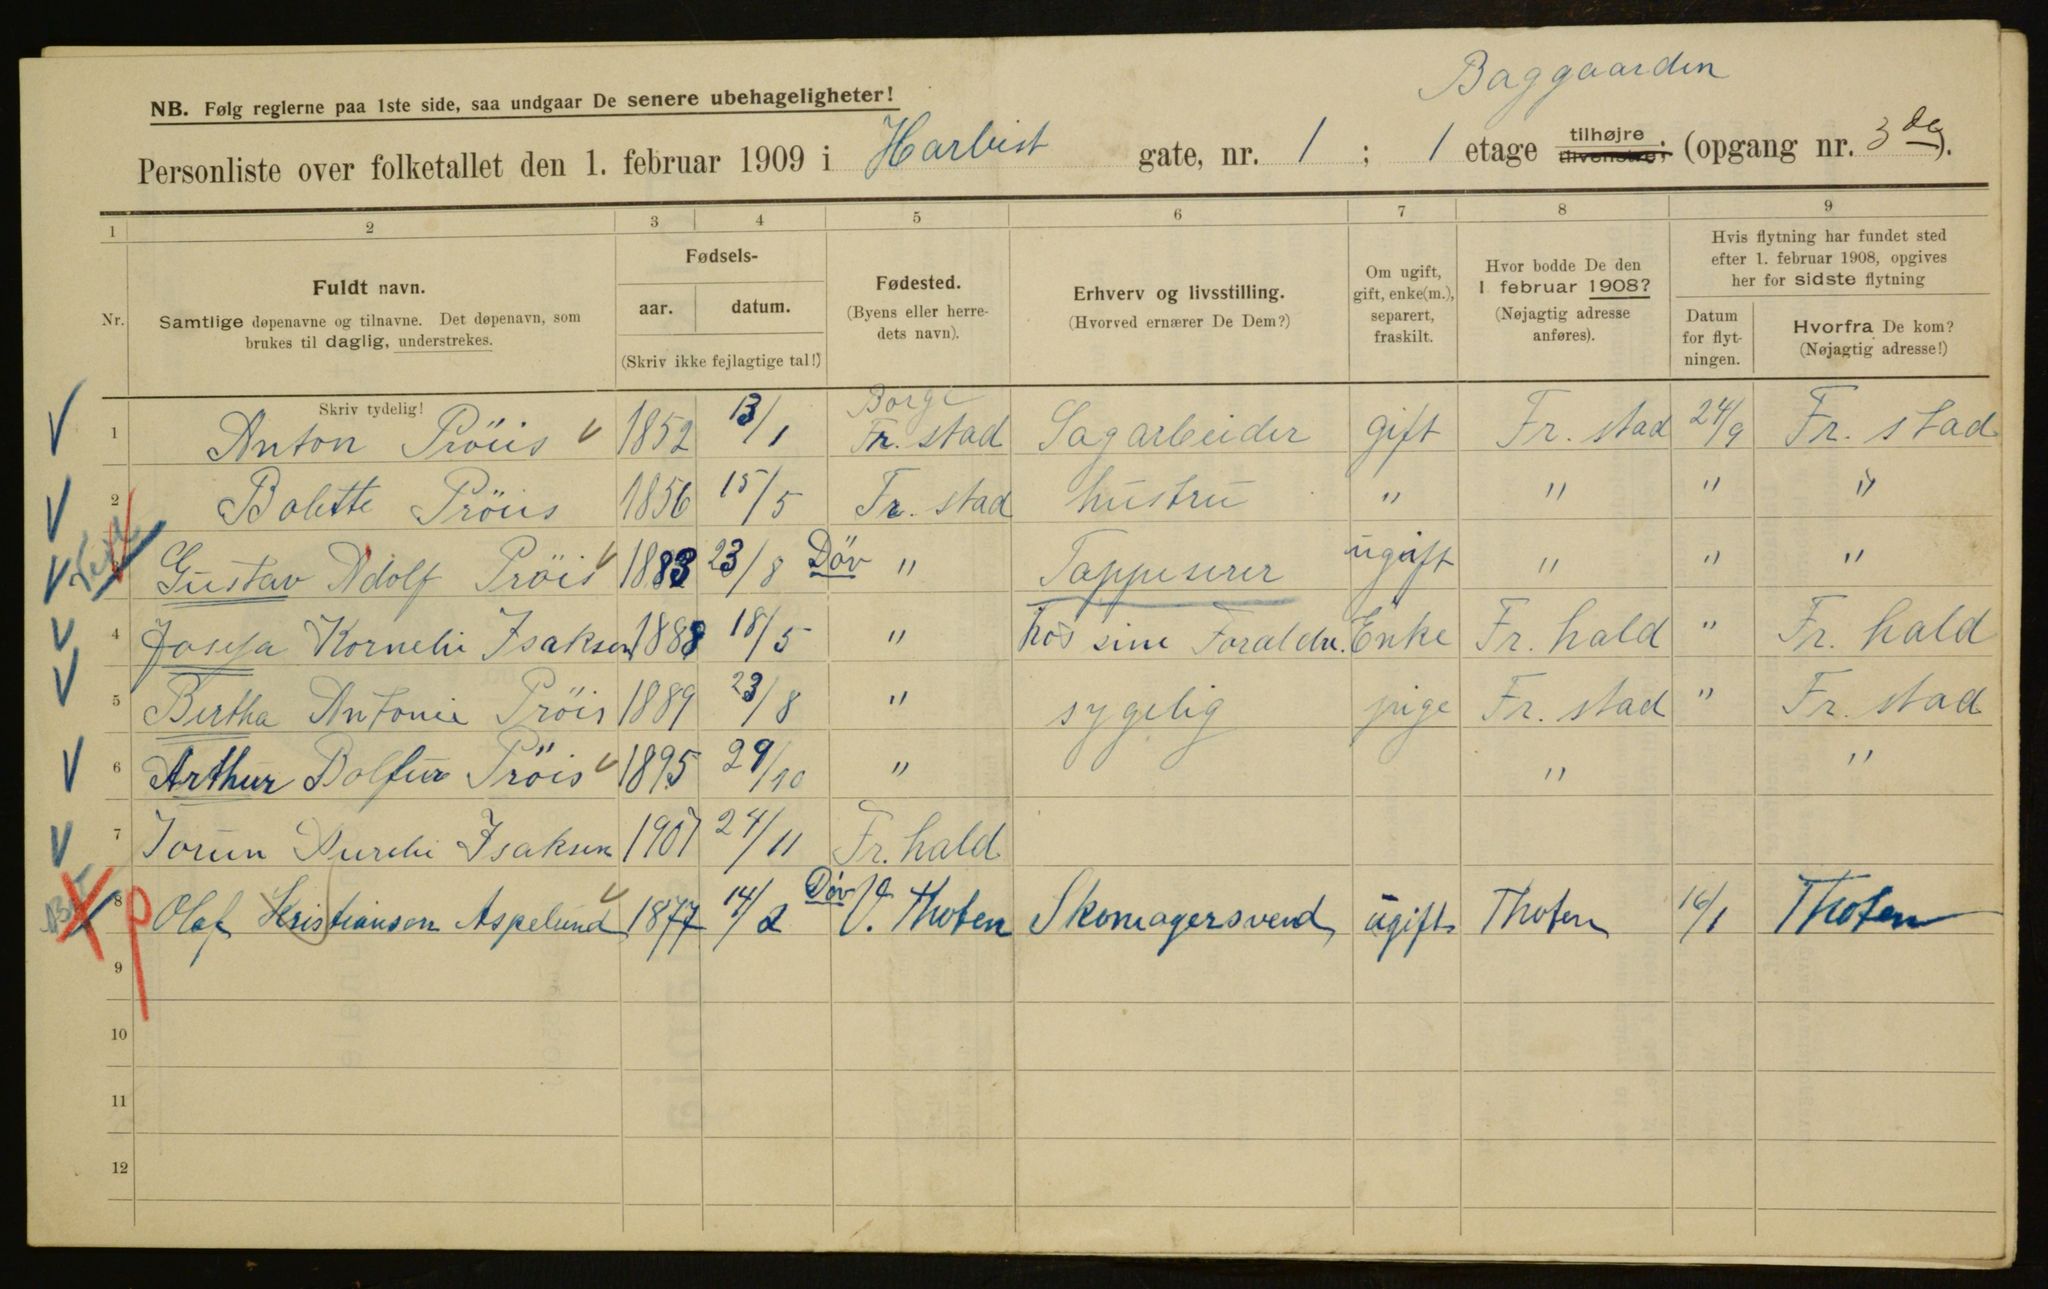 Baggaarden
NB. Følg reglerne paa 1ste side, saa undgaar De senere ubehageligheter!
Personliste over folketallet den 1. februar 1909 i Harbist gate, nr. 1 ; 1 etage tilhøjre tilvenstre; (opgang nr. 3 de).
1 2 3 4 5 6 7 8 9
Nr.
Fuldt navn.
Samtlige døpenavne og tilnavne. Det døpenavn, som
brukes til daglig, understrekes.
Fødsels-
aar. datum.
(Skriv ikke fejlagtige tal!)
Fødested.
(Byens eller herre-
dets navn).
Erhverv og livsstilling.
(Hvorved ernærer De Dem?)
Om ugift,
gift, enke(m.),
separert,
fraskilt.
Hvor bodde De den
1 februar 1908?
(Nøjagtig adresse
anføres).
Hvis flytning har fundet sted
efter 1. februar 1908, opgives
her for sidste flytning
Datum
for flyt-
ningen.
Hvorfra De kom?
(Nøjagtig adresse!)
Skriv tydelig!
Borge
1 Anton Pröiis 1852 13/1 Fr. stad Sagarbeider gift Fr. stad 24/9 Fr. stad
2 Bolette Pröiis 1856 15/5 Fr. stad hustru " " " "
3 Gustav Adolf Pröis 1883 23/8 Döv " Tappeserer ugift " " "
4 Josefa Kornelie Isaksen 1888 18/5 " hos sine Foraldre. Enke Fr. hald " Fr. hald
5 Bertha Antonie Pröis 1889 23/8 " sygelig pige Fr. stad " Fr. stad
6 Arthur Bolfur Pröis 1895 29/10 " " "
7 Jorun Aurelie Isaksen 1907 24/11 Fr. hald
8 Olaf Kristianson Aspelund 1877 14/2 Döv V. Thoten Skomagersvend ugift Thoten 16/1 Thoten
9
10
11
12